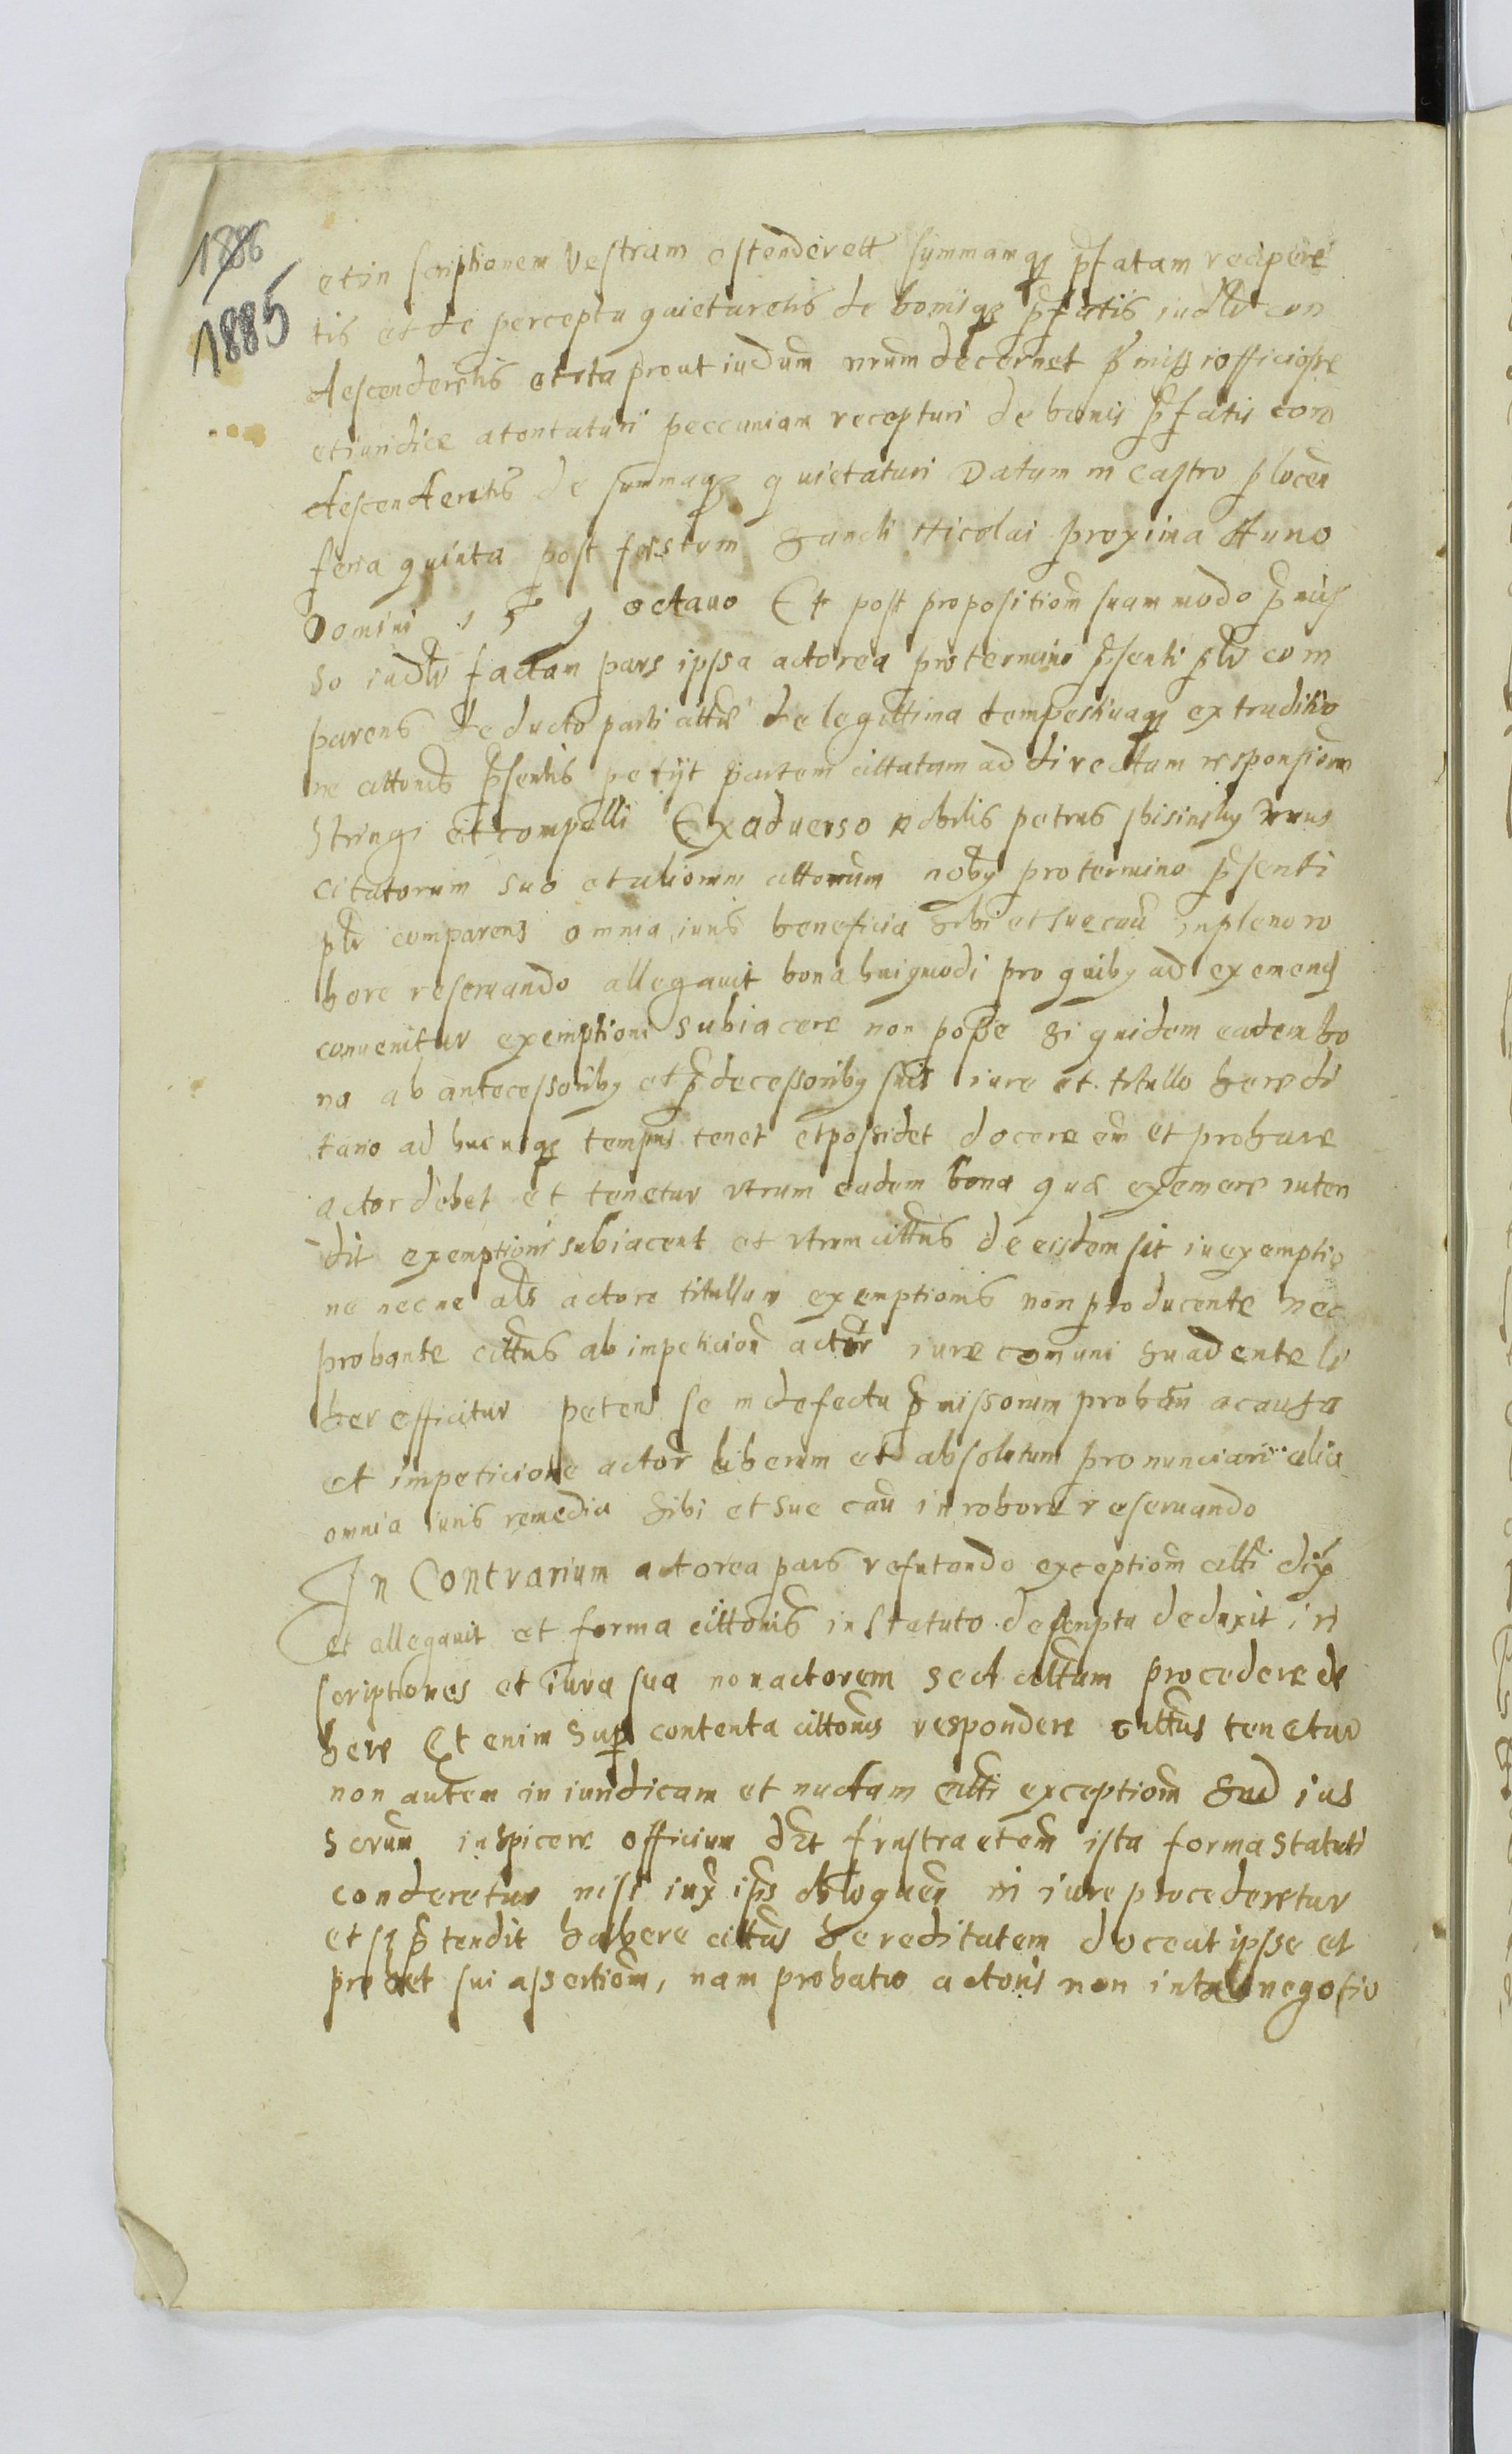 1886
1885
et in scriptionem vestram ostenderett summamq3 p̃fatam recipere
tis et de percepta quietaretis de bonisq3 p̃fatis iudlr con
descenderetis et ita prout iudum nrum decernet p̃miss officiose
et iuridice atentaturi peccuniam recepturi de bonis p̃fatis con
descenderetis de summaq3 quietaturi Datum in Castro plocen
feria quinta post festum Sancti Nicolai proxima Anno
Domini octauo Et post propositiom̃ suam modo p̃mis
so iudlr factam pars ipsa actorea pro termino p̃senti plr com
parens deducto parti citte de legittima tempestiuaq3 extraditio
ne cittonis p̃sentis petijt partem cittatam ad directam responsiom̃
stringi et compelli Ex aduerso nobilis petrus sbisinsky nrus
citatorum suo et aliorum cittorum noby pro termino p̃senti
plr comparens omnia iuris beneficia sibi et sue cau in pleno ro
bore reseruando allegauit bona huiqmodi pro quiby ad exemend
conuenitur exemptioni subiacere non posse Si quidem eadem bo
na ab antecessoriby et p̃decessoriby suis iure et titullo heredi
tario ad hucusq3 tempus tenet et possidet docere em̃ et probare
actor debet et tenetur vtrum eadem bona quæ exemere inten
dit exemptioni subiacent et vtrum cittus de eisdem sit in exemptio
ne necne als actore titullum exemptionis non producente nec
probante cittus ab impeticion actor iure comuni suadente li
ber efficitur petens se in defectu p̃missorum proban a causa
et impeticione actor liberum et absolutum pronunciari alia
omnia iuris remedia sibi et sue cau in robore reseruando
In Contrarium actorea pars refutando exceptiom̃ citti dix̃
et allegauit et forma cittonis in statuto descripta deduxit in
scriptiones et iura sua non actorem sed cittum procedere de
bere Et enim sup contenta cittonis respondere cittus tenetur
non autem in iuridicam et nudam citti exceptiom̃ Sed ius
serum inspicere officium dzt frustra etem̃ ista forma statuti
conderetur nisi iux̃ ips obloquen in iure procederetur
et si p̃tendit habere cittus hereditatem doceat ipse et
probet sui assertiom̃, nam probatio actoris non in tali negotio